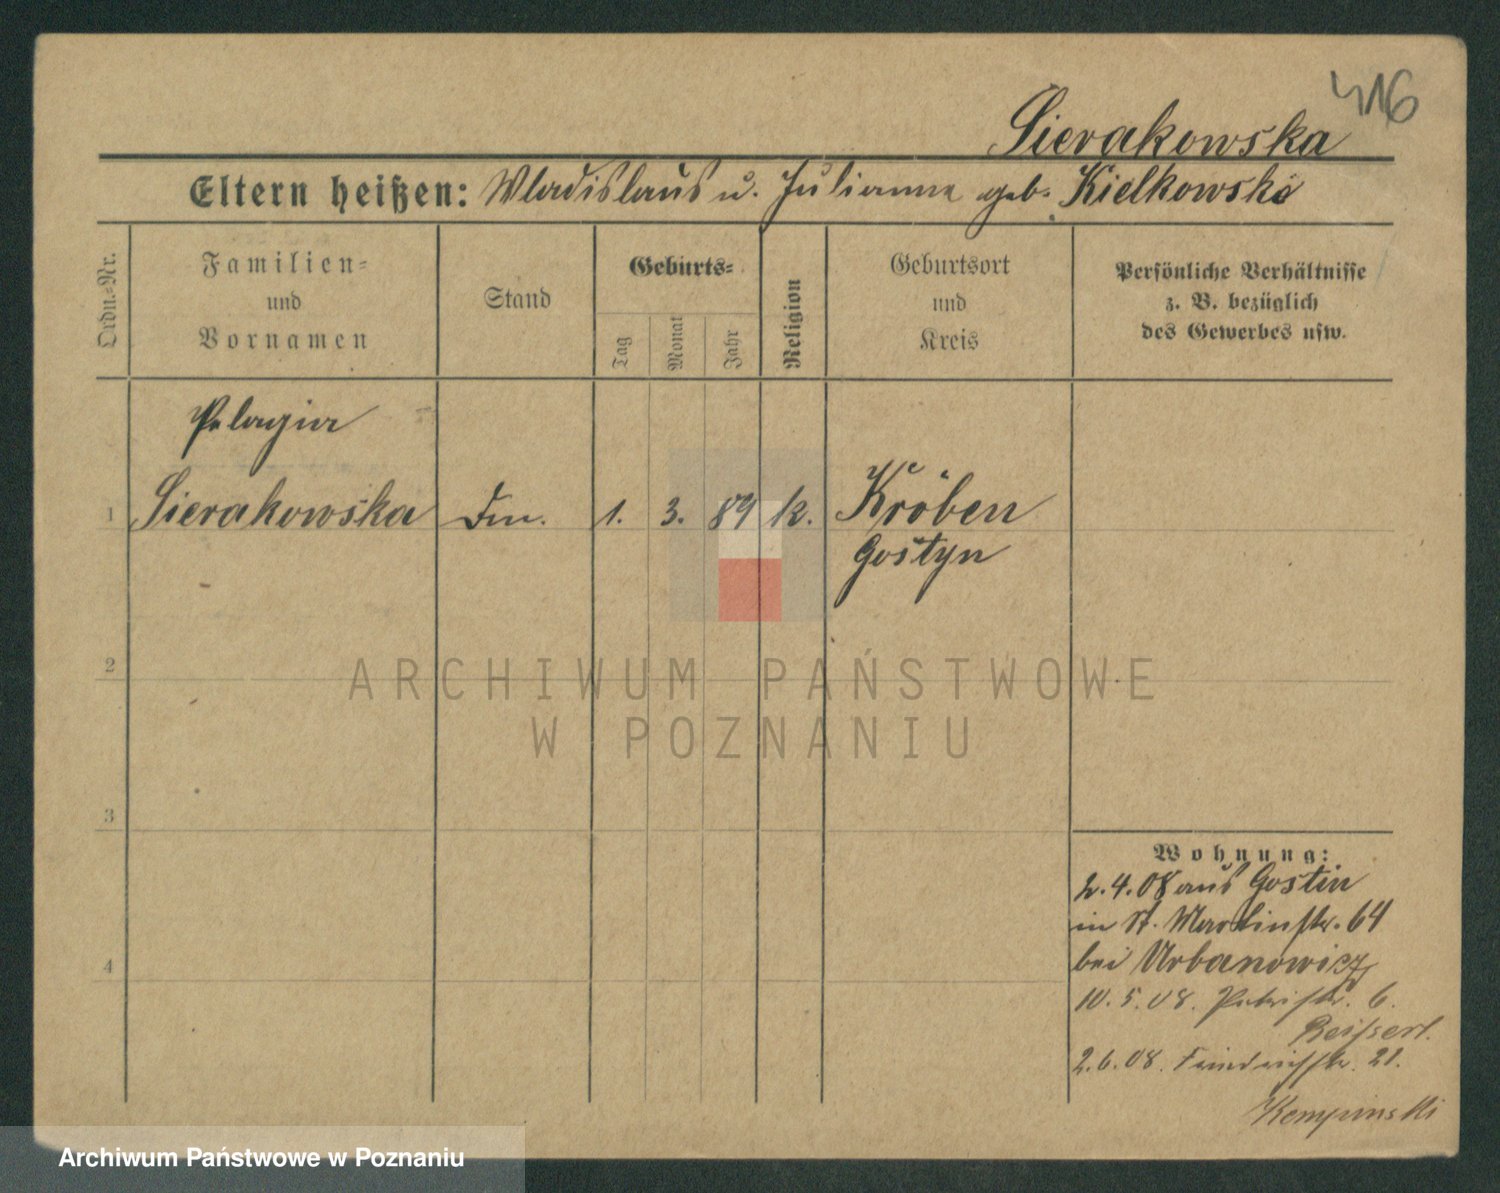 416
Sierakowska
Eltern heißen: Wladislaus u. Julianna geb. Kielkowska
Ordn.-Nr.
Familien-
und
Vornamen
Stand
Geburts-
Tag
Monat
Jahr
Religion
Geburtsort
und
Kreis
Persönliche Verhältnisse
z. B. bezüglich
des Gewerbes usw.
Pelagia
1 Sierakowska 1. 3. 89 k. Kröben
Gostyn
2
ARCHIWUM PAŃSTWOWE
W POZNANIU
3
4
Wohnung:
2.4.08 aus Gostin
in St. Martinstr. 64
bei Urbanowicz
10.5.08. Petristr. 6.
2.6.08. Friedrichstr. 21.
Kempinski
Archiwum Państwowe w Poznaniu